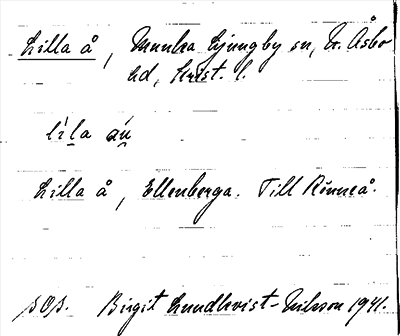 Lilla å, Munka Ljungby sn, N. Åsbo
hd, Krist. l.
lila áu
Lilla å, Ellenberga. Till Rönneå.
Birgit Lundkvist-Nilsson 1941.